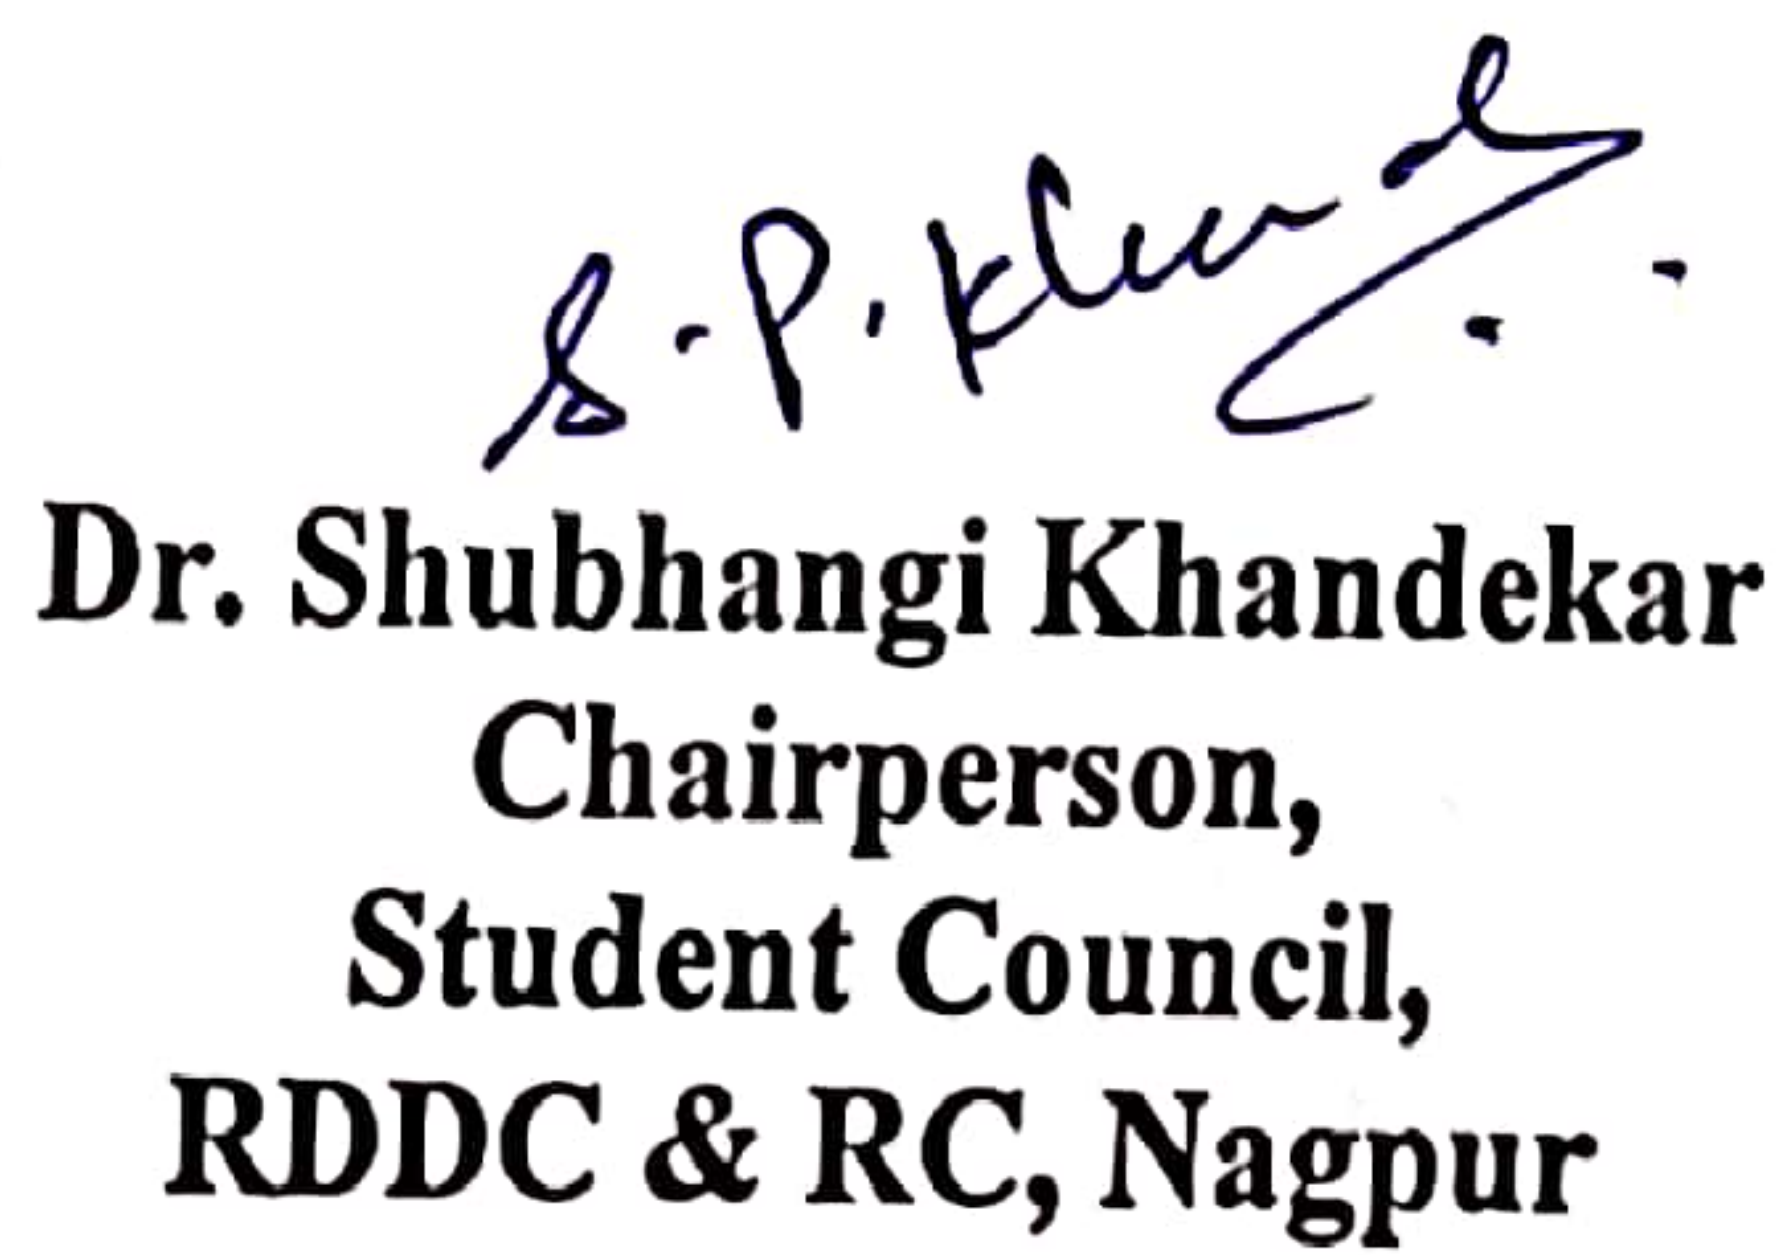 S. P. Khand
Dr. Shubhangi Khandekar
Chairperson,
Student Council,
RDDC & RC, Nagpur